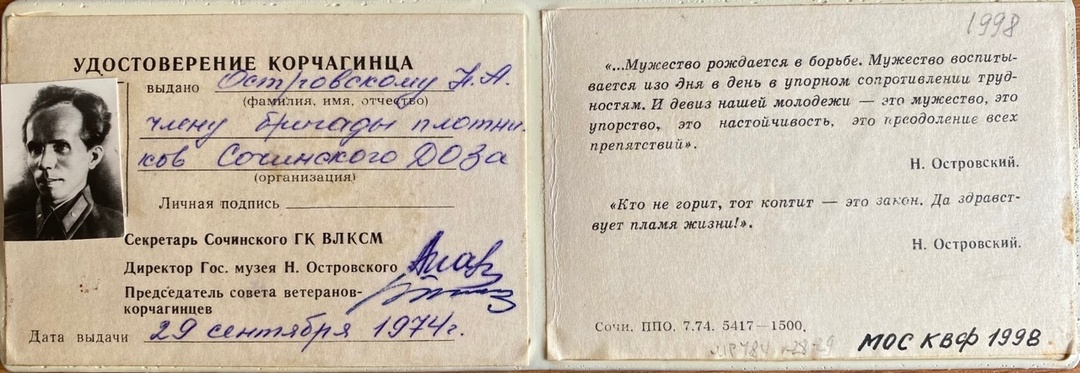 УДОСТОВЕРЕНИЕ КОРЧАГИНЦА
выдано Островскому Н.А.
(фамилия, имя, отчество)
члену бригады плотни-
ков Сочинского ДОЗа
(организация)
Личная подпись
Секретарь Сочинского ГК ВЛКСМ
Директор Гос. музея Н. Островского
Председатель совета ветеранов-
корчагинцев
Дата выдачи 29 сентября 1974г.
1998
«...Мужество рождается в борьбе. Мужество воспиты-
вается изо дня в день в упорном сопротивлении труд-
ностям. И девиз нашей молодежи — это мужество, это
упорство, это настойчивость, это преодоление всех
препятствий».
Н. Островский.
«Кто не горит, тот коптит — это закон. Да здравст-
вует пламя жизни!».
Н. Островский.
Сочи. ППО. 7.74. 5417—1500.
МОС КВФ 1998